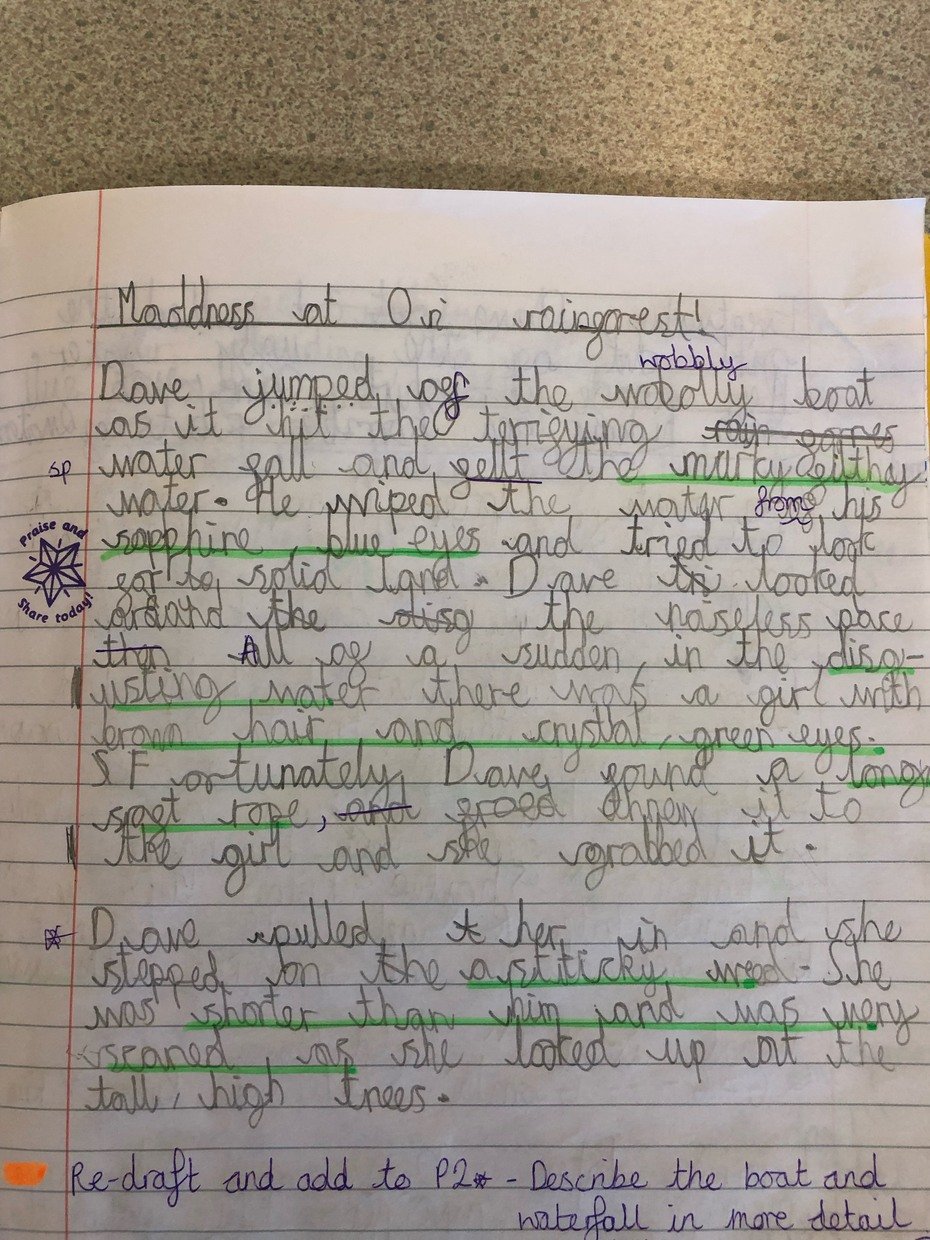 Maddness at Ori rainforest!
wobbly
Dave jumped off the wobolly boat
as it hit the terrifying
sp water fall and fellt the murky, filthy
water. He wiped the water from his
Praise and
Share today!
sapphire, blue eyes and tried to look
for to solid land. Dave looked
around the the noiseless place
then All of a sudden, in the disg-
usting water there was a girl with
brown hair and crystal, green eyes.
Fortunately, Dave found a long,
soft rope, and threw it to
the girl and she grabbed it.
Dave pulled her in and she
stepped on the mud. She
was shorter than him and was very
scared, as she looked up at the
tall, high trees.
Re-draft and add to P2* - Describe the boat and
waterfall in more detail